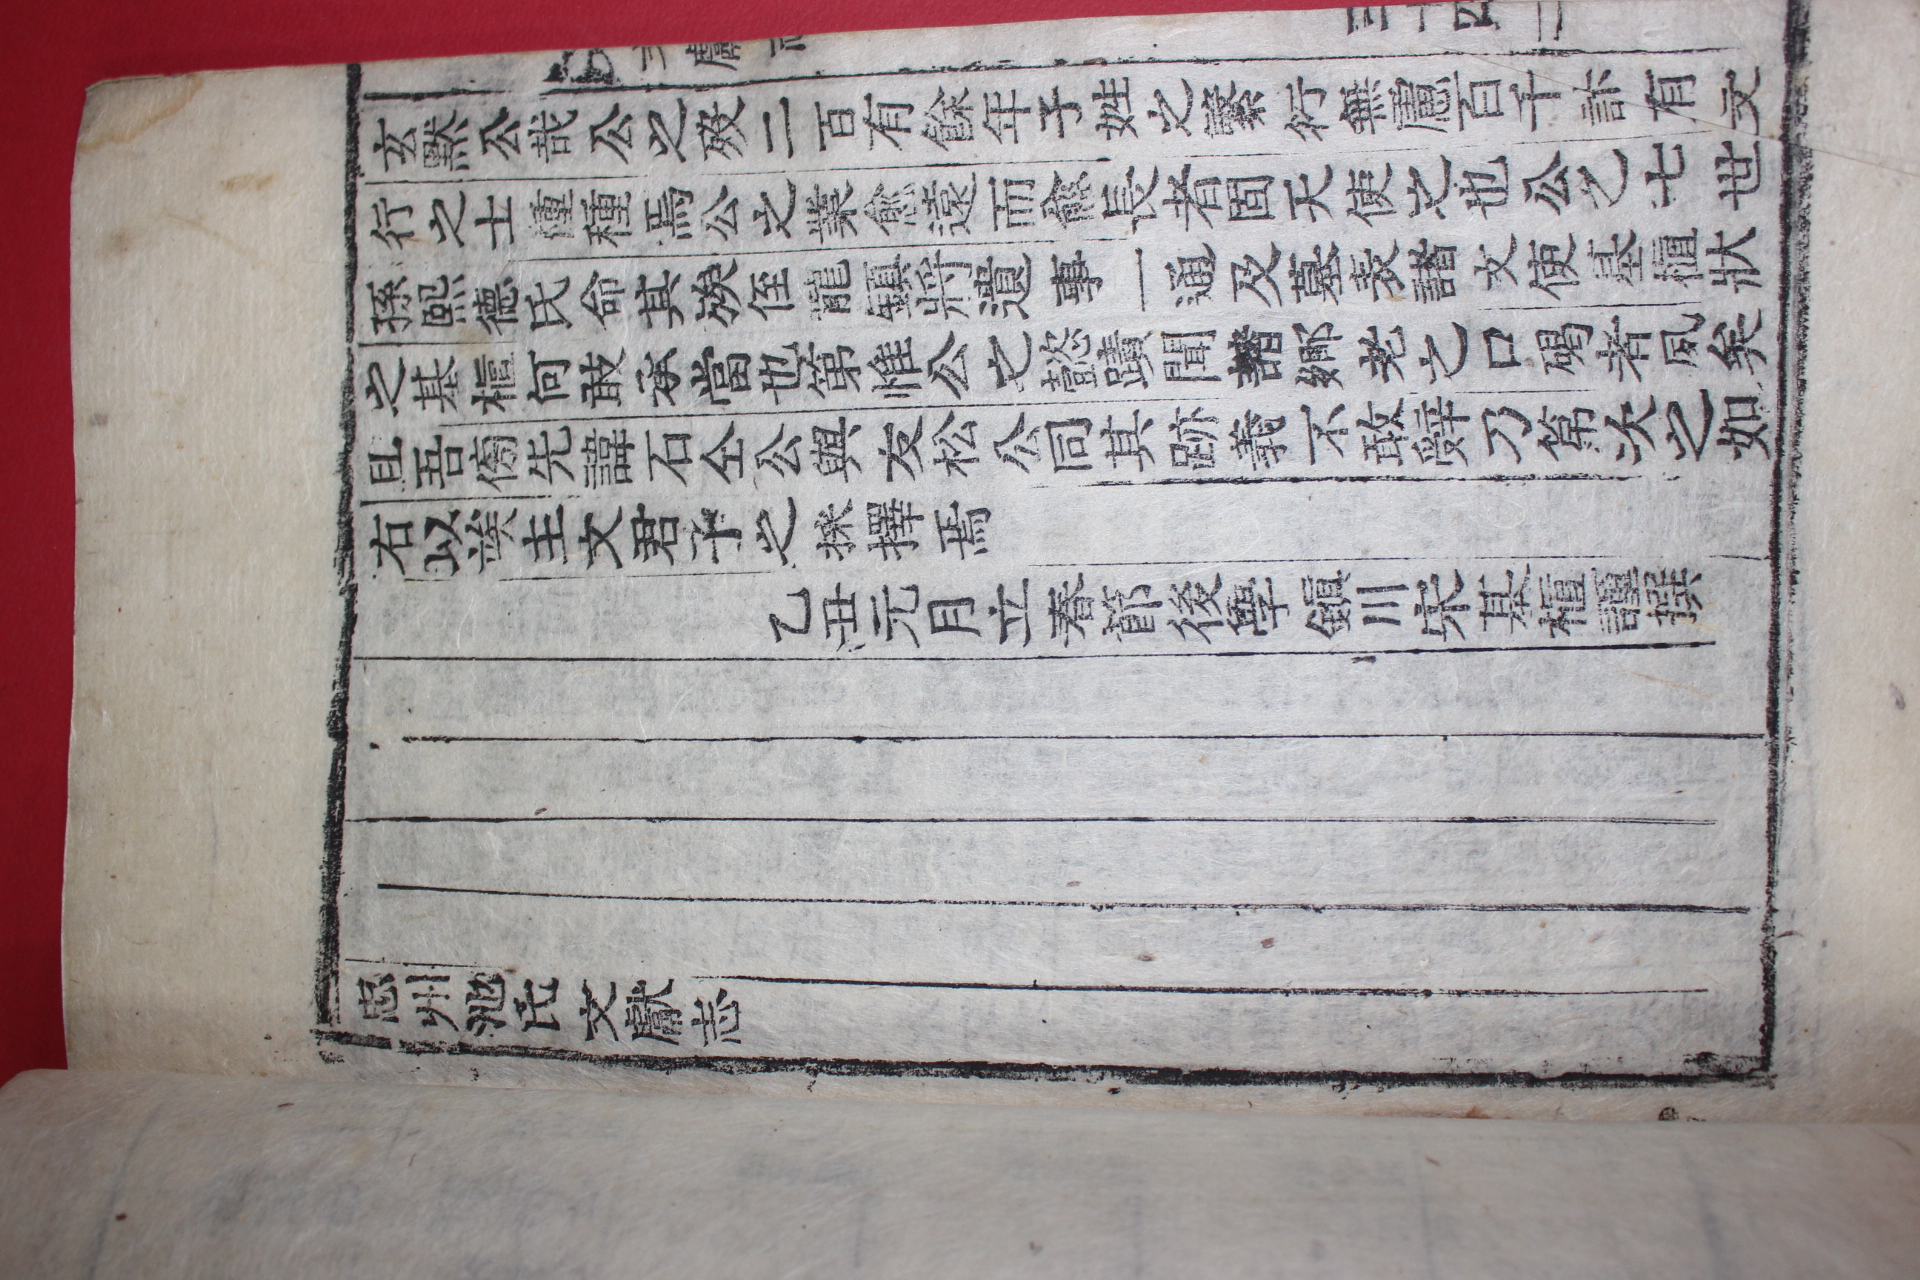 玄默公哉公之歿二百有餘年子姓之繁衍無慮百千許有文
行之士種種焉公之業愈遠而愈長者固天使之也公之七世
孫熙德氏命其族侄龍鎭將遺事一通及墓表諸文使基樞狀
之基樞何敢承當也第惟公之懿蹟聞諸鄕老之口碣者夙矣
且吾傍先諱石仝公與友松公同其跡義不敢辭乃第次之如
右以竢主文君子之採擇焉
乙丑元月立春節後學鎭川宋基樞謹撰
忠州池氏文獻志
文獻志
三十四